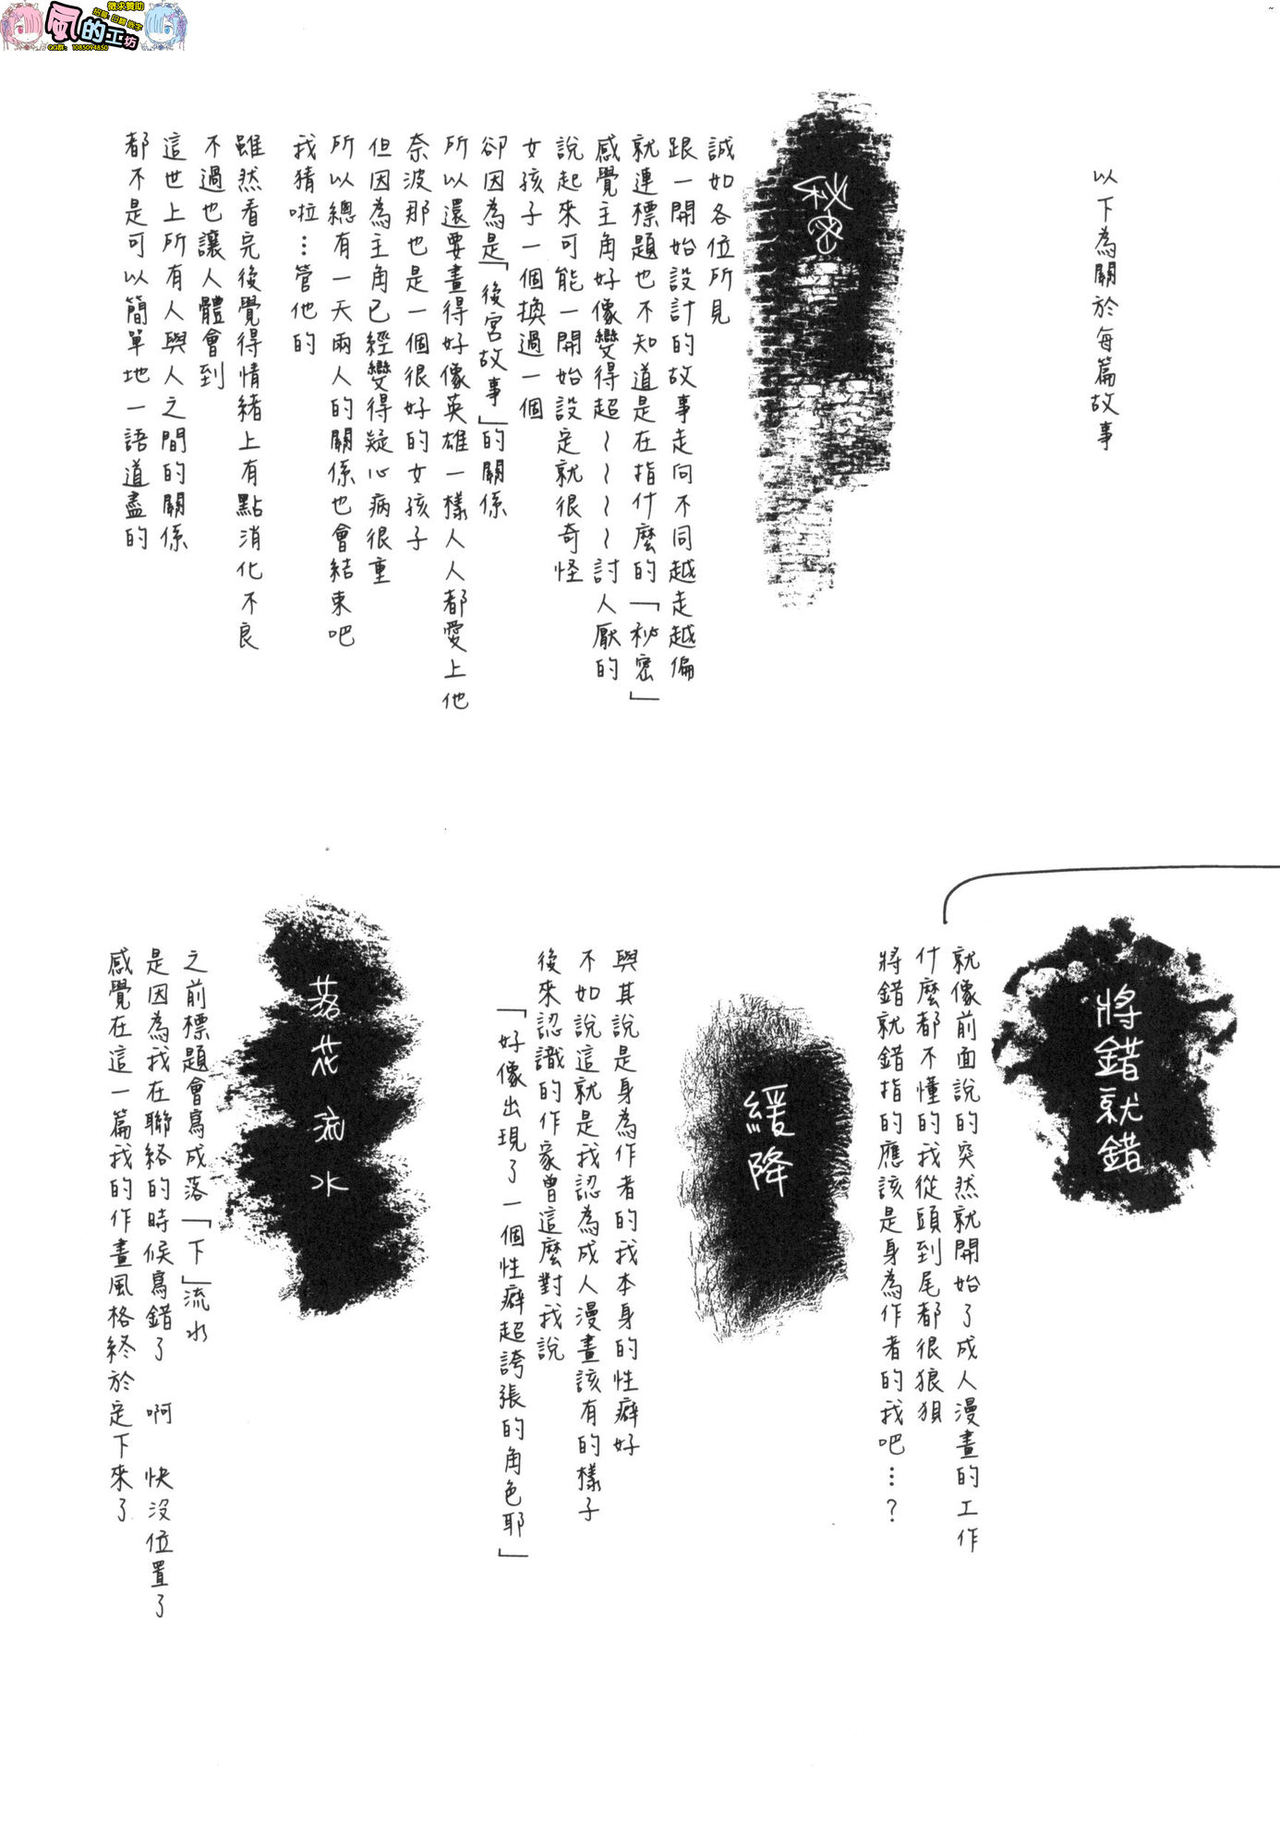 徵求贊助
風的工坊
以下為關於每篇故事
秘密
誠如各位所見
跟一開始設計的故事走向不同越走越偏
就連標題也不知道是在指什麼的「秘密」
感覺主角好像變得超～～～～討人厭的
說起來可能一開始設定就很奇怪
女孩子一個換過一個
卻因為是「後宮故事」的關係
所以還要畫得好像英雄一樣人人都愛上他
奈波那也是一個很好的女孩子
但因為主角已經變得疑心病很重
所以總有一天兩人的關係也會結束吧
我猜啦…管他的
雖然看完後覺得情緒上有點消化不良
不過也讓人體會到
這世上所有人與人之間的關係
都不是可以簡單地一語道盡的
將錯就錯
就像前面說的突然就開始了成人漫畫的工作
什麼都不懂的我從頭到尾都很狼狽
將錯就錯指的應該是身為作者的我吧…？
緩降
與其說是身為作者的我本身的性癖好
不如說這就是我認為成人漫畫該有的樣子
後來認識的作家曾這麼對我說
「好像出現了一個性癖超誇張的角色耶」
落花流水
之前標題會寫成落「下」流水
是因為我在聯絡的時候寫錯了 啊 快沒位置了
感覺在這一篇我的作畫風格終於定下來了